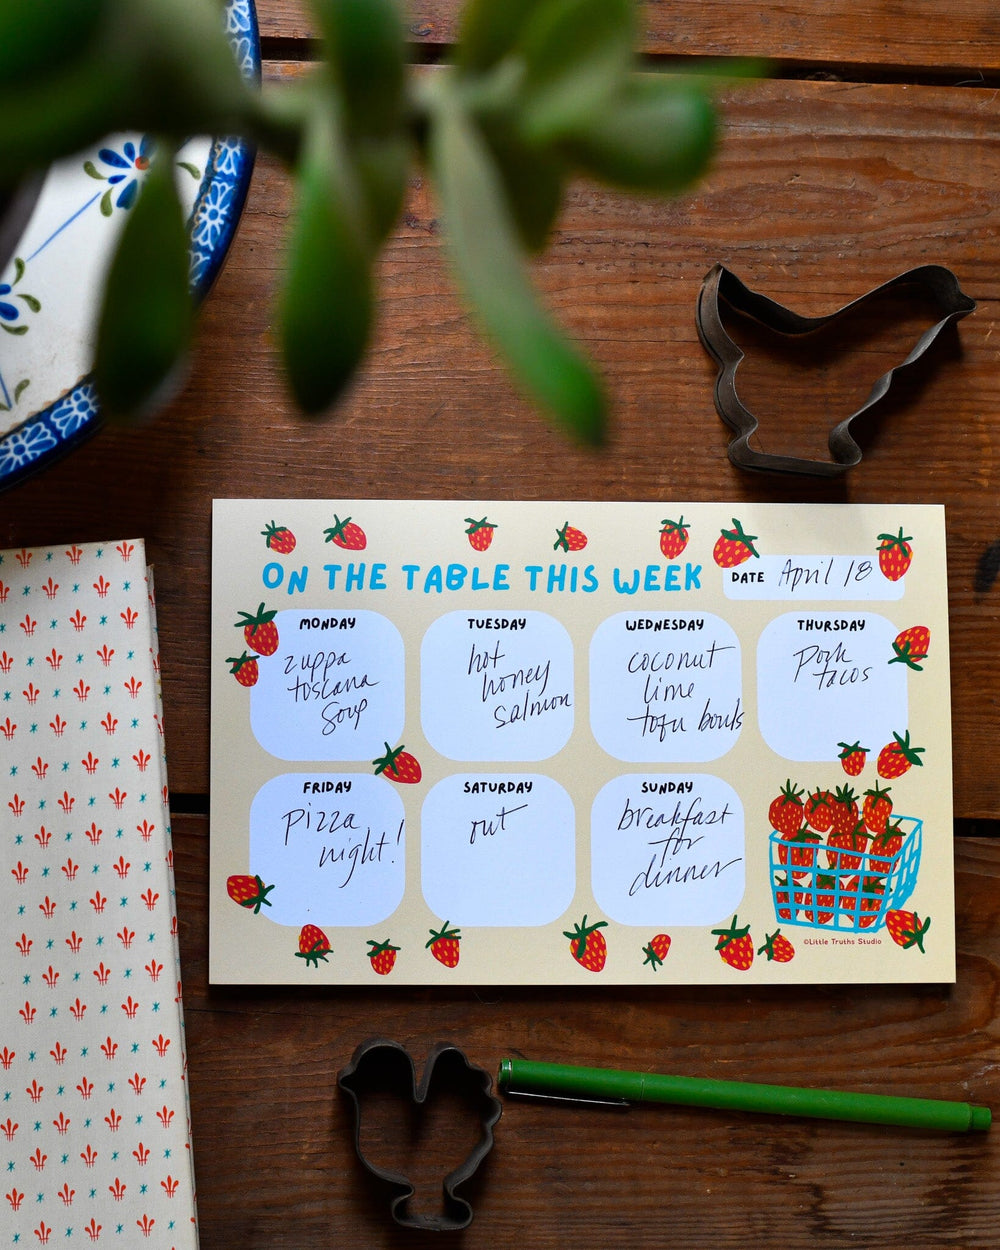 ON THE TABLE THIS WEEK
DATE April 18
MONDAY
zuppa
toscana
soup
TUESDAY
hot
honey
salmon
WEDNESDAY
coconut
lime
tofu bowls
THURSDAY
pork
tacos
FRIDAY
pizza
night!
SATURDAY
out
SUNDAY
breakfast
for
dinner
©Little Truths Studio